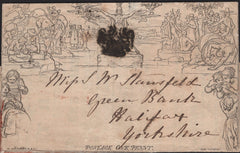 Miss W. Stansfeld
Green Bank
Halifax
Yorkshire
POSTAGE ONE PENNY.